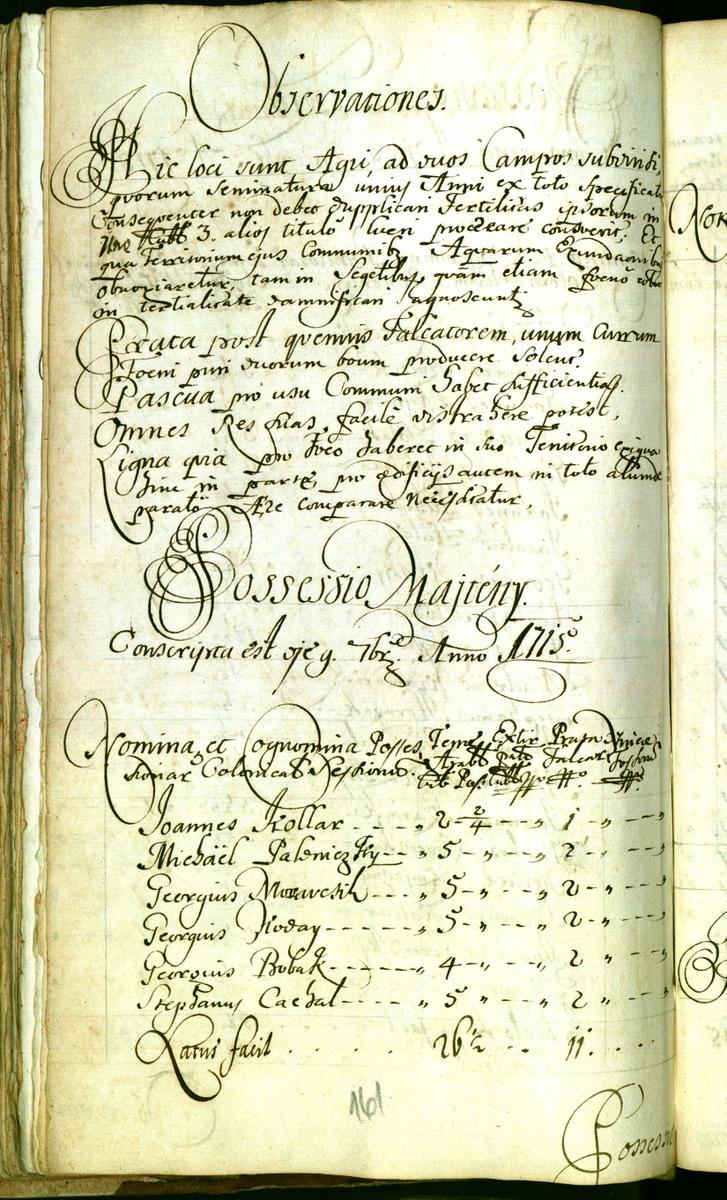 Observationes.
Hic loci sunt Agri, ad duos Campos subdivisi,
quorum seminatura unius Anni ex toto specificata
Consequenter non debet dupplicari Fertilitas ipsorum in
3. alios titulo lucri procreare consvevit. Et
qua Territorium ejus Communibus Aquarum Exundaonibus
obnoxiaretur, tam in Segetibus, quam etiam foeno
in tertialitate damnificari agnoscuntur
Prata post quemvis Falcatorem, unum Currum
Foeni puri duorum boum producere Solent.
Pascua pro usu Communi habet sufficientia.
Omnes Res suas, facile distrahere potest,
Ligna quia pro foco haberet in suo Teritorio exigua
hinc in parte, pro aedificijs autem in toto aliunde
parato Aere comparare necessitatur.
Possessio Majtény.
Conscripta est die 9. 7br. Anno 1715.
Nomina, et Cognomina Posses Terrae Extir Prata Vineae
sionat Colonical Sessionu. Arabi Falcat Fossoru
Joannes Kollar - - - „ 2 2/4 - - „ 1 „ - - „
Michaël Paleniczky - - „ 5 - „ - - „ 2 - „ - - „
Georgius Moravcsik - - - „ 5 - „ - - „ 2 - „ - - „
Georgius Hoday - - - - „ 5 - „ - - „ 2 - „ - - „
Georgius Bobak - - - - - „ 4 - „ - - „ 2 „ - - „
Stephanus Cachal - - - - „ 5 „ - - „ 2 „ - - „
Latus facit . . . . . 26 1/2 . . 11. . . .
161
Possessi